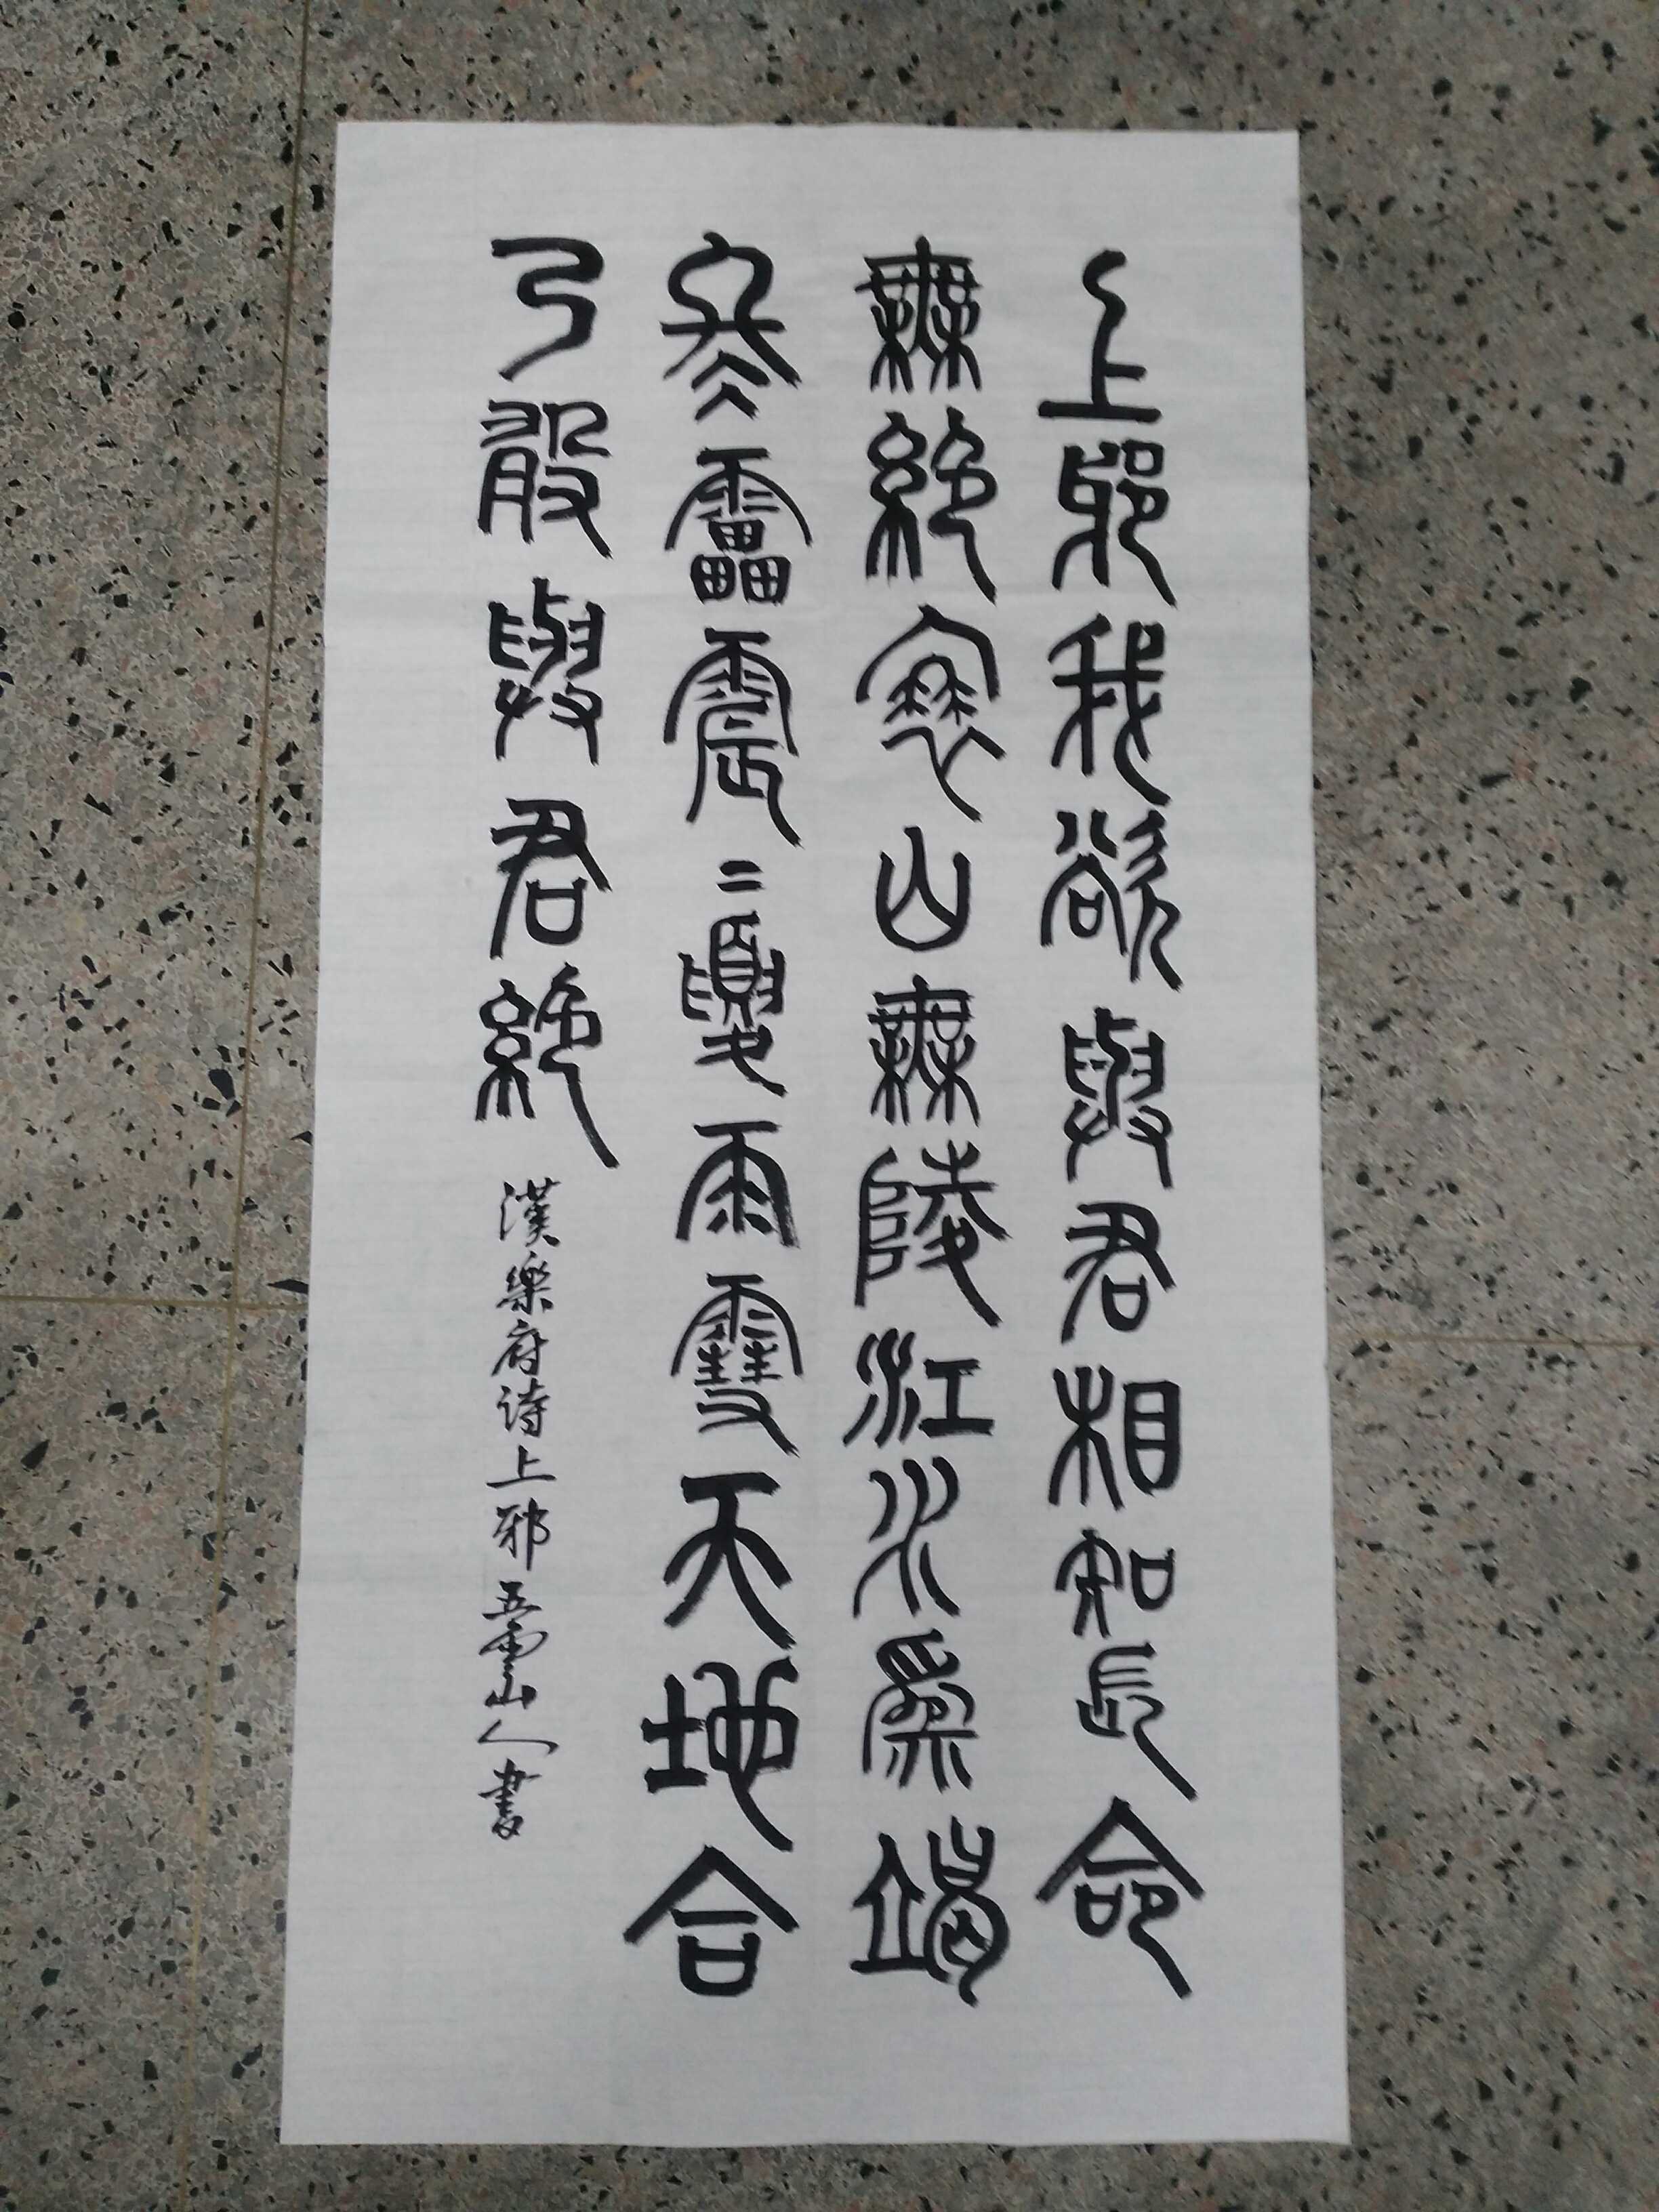 上邪我欲與君相知長命
無絕衰山無陵江水爲竭
冬靁震二夏雨雪天地合
乃敢與君絕
漢樂府诗上邪五雲山人書